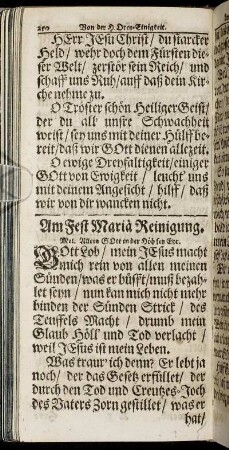 250 Von der H. Drey-Einigkeit.
HErr JEsu Christ / du starcker
Held / wehr doch dem Fürsten die-
ser Welt / zerstör sein Reich / und
schaff uns Ruh / auff daß dein Kir-
che nehme zu.
O Tröster schön Heiliger Geist /
der du all unser Schwachheit
weist / sey uns mit deiner Hülff be-
reit / daß wir GOtt dienen allezeit.
O ewige Dreyfaltigkeit / einiger
GOtt von Ewigkeit / leucht uns
mit deinem Angesicht / hilff / daß
wir von dir wancken nicht.
Am Fest Mariä Reinigung.
Mel. Allein GOtt in der Höh sey Ehr.
GOtt Lob / mein JEsus macht
mich rein von allen meinen
Sünden / was er büsst / muß bezah-
let seyn / nun kan mich nicht mehr
binden der Sünden Strick / des
Teuffels Macht / drumb mein
Glaub Höll und Tod verlacht /
weil JEsus ist mein Leben.
Was traur ich denn? Er lebt ja
noch / der das Gesetz erfüllet / der
durch den Tod und Creutzes-Joch
des Vaters Zorn gestillet / was er
hat /